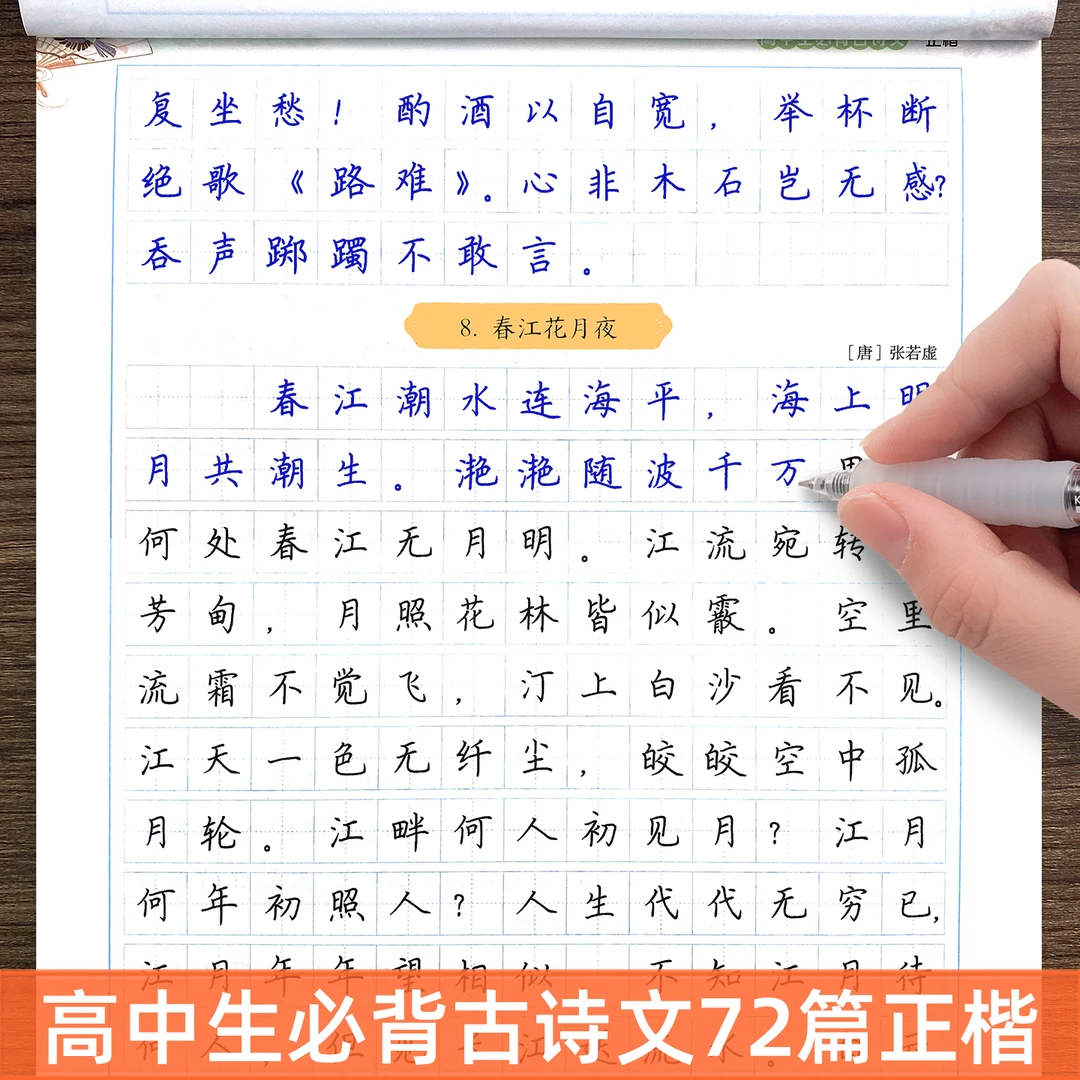 高中生必背古诗文 正楷
复坐愁！酌酒以自宽，举杯断
绝歌《路难》。心非木石岂无感？
吞声踯躅不敢言。
8. 春江花月夜
［唐］张若虚
春江潮水连海平，海上明
月共潮生。滟滟随波千万
何处春江无月明。江流宛转
芳甸，月照花林皆似霰。空里
流霜不觉飞，汀上白沙看不见。
江天一色无纤尘，皎皎空中孤
月轮。江畔何人初见月？江月
何年初照人？人生代代无穷已，
江月年年望相似 不知江月待
高中生必背古诗文72篇正楷